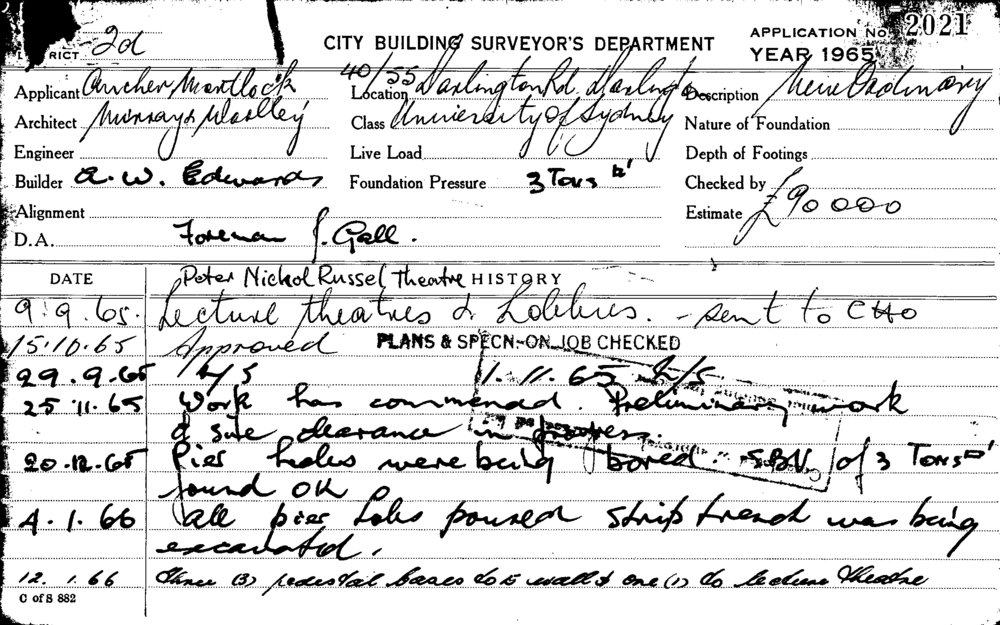 DISTRICT 2d
CITY BUILDING SURVEYOR'S DEPARTMENT
APPLICATION No. 2021
YEAR 1965
Applicant Ancher Mortlock
Location 40/55 Darlington Rd. Darlington
Description New Ordinary
Architect Murray & Woolley
Class University of Sydney
Nature of Foundation
Engineer
Live Load
Depth of Footings
Builder A. W. Edwards
Foundation Pressure 3 Tons
Checked by
Alignment
Estimate £90000
D.A. Foreman J. Gall.
DATE
Peter Nickol Russel Theatre HISTORY
9.9.65. Lecture theatres & Lobbies. - sent to CHO
15.10.65 Approved PLANS & SPECN-ON JOB CHECKED
29.9.65 1.11.65
25.11.65 Work has commenced. Preliminary work
& site clearance in progress.
20.12.65 Pier holes were being bored. SBV. of 3 Tons
found OK
4.1.66 All pier holes poured strip trench was being
excavated.
12.1.66 Three (3) pedestal bases to E wall & one (1) to lecture theatre
C of S 882